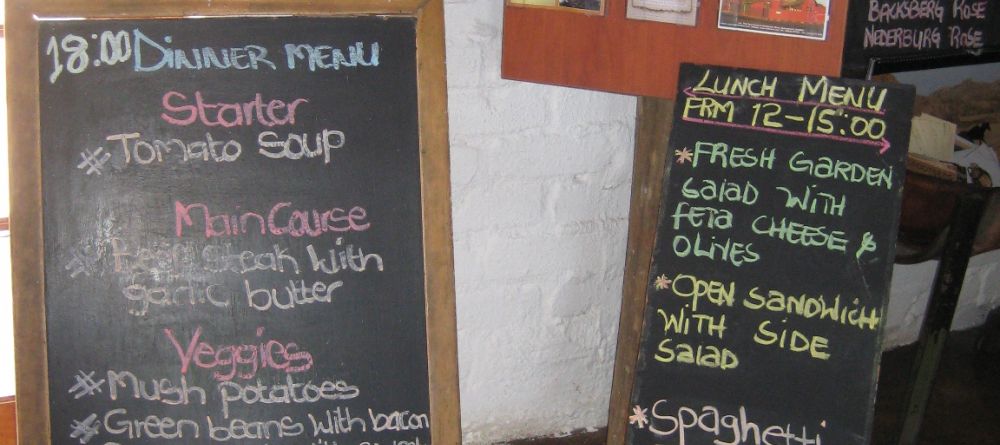 18:00 DINNER MENU
Starter
# Tomato Soup
Main Course
# Beef steak with
garlic butter
Veggies
# Mush potatoes
# Green beans with bacon
LUNCH MENU
FRM 12-15:00
*FRESH GARDEN
Salad WITH
feta CHEESE &
OLIVES
*OPEN SANDWICH
WITH SIDE
Salad
*Spaghetti
BACKSBERG ROSE
NEDERBURG ROSE